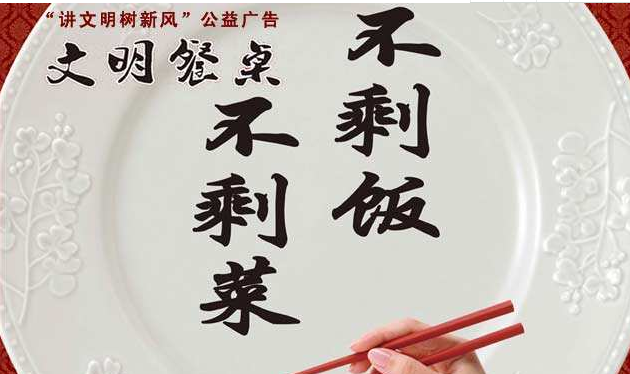 “讲文明树新风”公益广告
文明餐桌
不剩饭
不剩菜